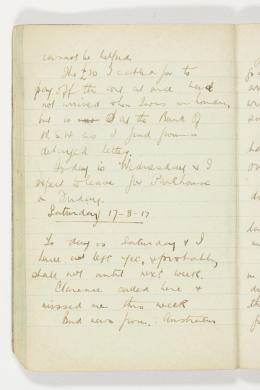 cannot be helped.
The £10 I cabled for to
pay off the
not arrived when I was in London,
but is at the Bank of
N.S.W. as I find from a
delayed letter.
To day is Wednesday & I
expect to leave for Parkhouse
on Friday.
Saturday 17-3-17
To day is Saturday & I
have not left yet, & probably
shall not until next week.
Clarence called here &
missed me this week
Bad news from Australia